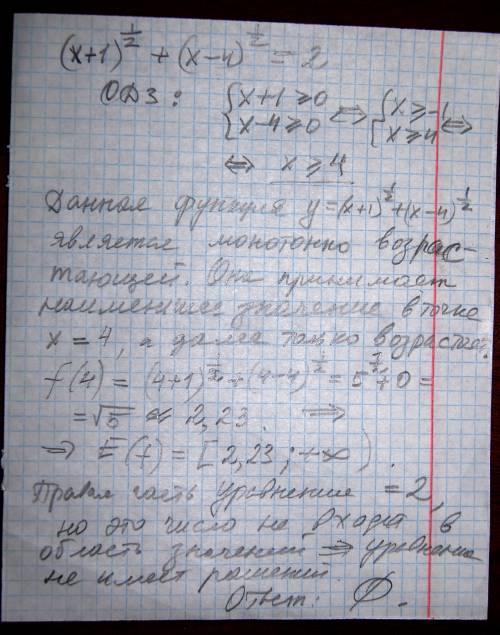 (x+1)^{1/2} + (x-4)^{1/2} = 2
ОДЗ: { x+1 ≥ 0 ⇔ { x ≥ -1
{ x-4 ≥ 0 { x ≥ 4 ⇔
⇔ x ≥ 4
Данная функция y=(x+1)^{1/2}+(x-4)^{1/2}
является монотонно возрас-
тающей. Она принимает
наименьшее значение в точке
x = 4, а далее только возрастает.
f(4) = (4+1)^{1/2} + (4-4)^{1/2} = 5^{1/2}+0 =
= √5 ≈ 2,23. ⇒
⇒ E(f) = [2,23; +∞).
Правая часть уравнения = 2,
но это число не входит в
область значений ⇒ уравнение
не имеет решений.
Ответ: Ø.